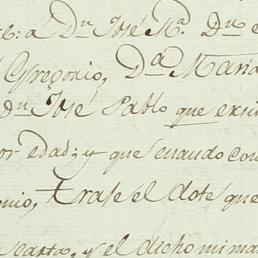 a Dn José Ma. Dn
Gregorio, Da Maria
Dn José Pablo que
edad; y que quando con
trase el dote que
y el dicho mi ma